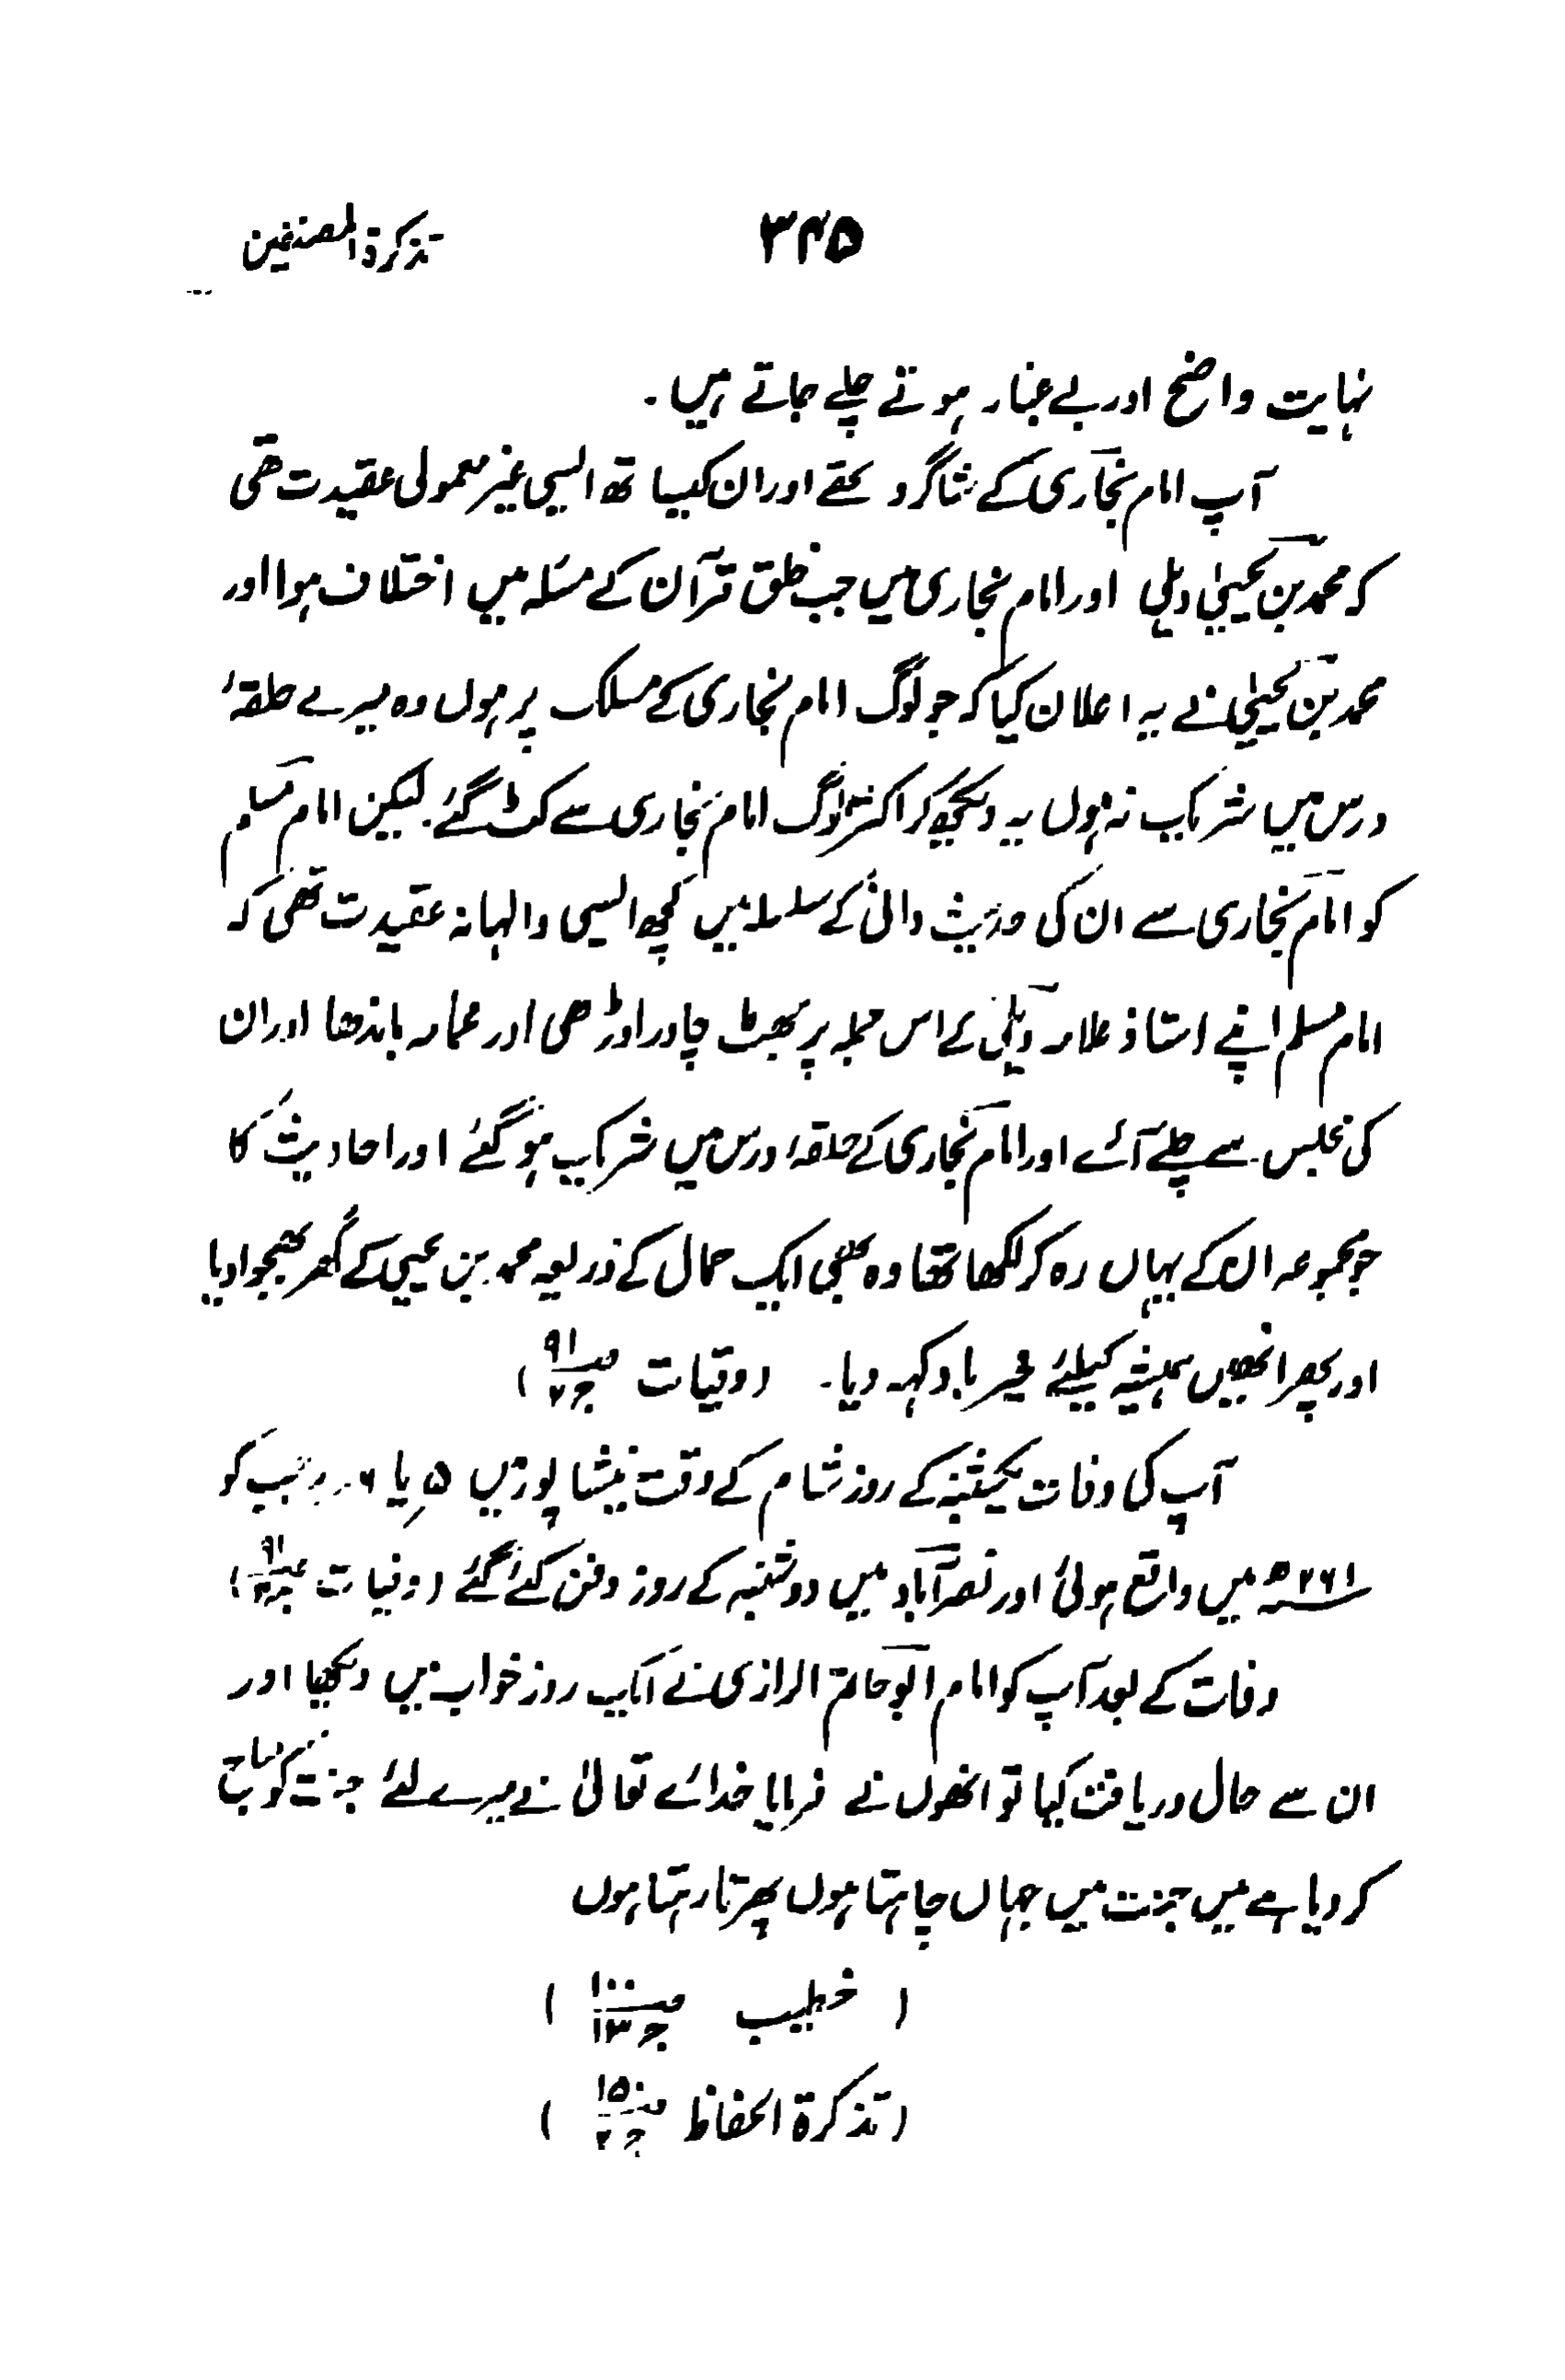 ۳۴۵ تذکرۃ المصنفین
نہایت واضح اور بے غبار ہوتے چلے جاتے ہیں۔
آپ امام بخاری کے شاگرد تھے اور ان کیساتھ ایسی غیر معمولی عقیدت تھی
کہ محمد بن یحییٰ ذہلی اور امام بخاری میں جب خلق قرآن کے مسئلہ میں اختلاف ہوا اور
محمد بن یحییٰ نے یہ اعلان کیا کہ جو لوگ امام بخاری کے مسلک پر ہوں وہ میرے حلقۂ
درس میں شریک نہ ہوں یہ دیکھ کر اکثر لوگ امام بخاری سے کٹ گئے۔ لیکن امام مسلم
کو امام بخاری سے ان کی حدیث دانی کے سلسلہ میں کچھ ایسی والہانہ عقیدت تھی کہ
امام مسلم اپنے استاذ علامہ ذہلی کے اس جملہ پر جھٹ چادر اوڑھی اور عمامہ باندھا اور ان
کی مجلس سے چلے آئے اور امام بخاری کے حلقۂ درس میں شریک ہو گئے اور احادیث کا
جو مجموعہ ان کے یہاں رہ کر لکھا تھا وہ بھی ایک حمال کے ذریعہ محمد بن یحیی کے گھر بھجوا دیا
اور پھر انھیں ہمیشہ کیلئے خیر باد کہہ دیا۔ (وفیات صـ۹۱ ج۲)
آپ کی وفات یکشنبہ کے روز شام کے وقت نیشاپور میں ۵ یا ۶ رجب کو
۲۶۱ھ میں واقع ہوئی اور نصر آباد میں دوشنبہ کے روز دفن کئے گئے (وفیات صـ۹۱ ج۲)
وفات کے بعد آپ کو امام ابو حاتم الرازی نے ایک روز خواب میں دیکھا اور
ان سے حال دریافت کیا تو انھوں نے فرمایا خدائے تعالیٰ نے میرے لئے جنت کو مباح
کر دیا ہے میں جنت میں جہاں چاہتا ہوں پھرتا رہتا ہوں
(خطیب صـ۱۰۰ ج۱۳)
(تذکرۃ الحفاظ صـ۱۵۰ ج۲)